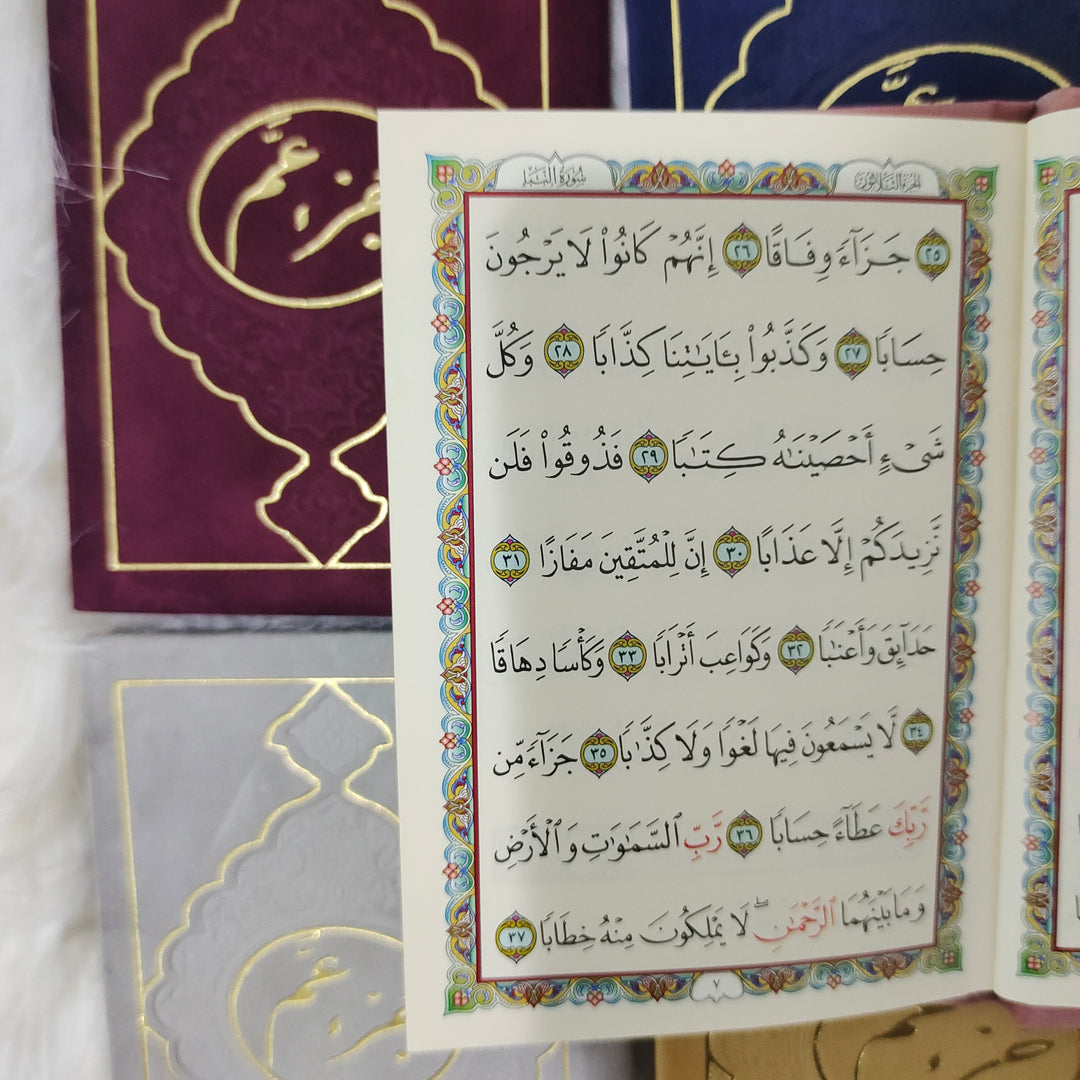 جزء عم
عم
سُورَةُ النَّبَإِ
الجزء الثلاثون
٢٥ جَزَآءً وِفَاقًا ٢٦ إِنَّهُمْ كَانُوا۟ لَا يَرْجُونَ
حِسَابًا ٢٧ وَكَذَّبُوا۟ بِـَٔايَـٰتِنَا كِذَّابًا ٢٨ وَكُلَّ
شَىْءٍ أَحْصَيْنَـٰهُ كِتَـٰبًا ٢٩ فَذُوقُوا۟ فَلَن
نَّزِيدَكُمْ إِلَّا عَذَابًا ٣٠ إِنَّ لِلْمُتَّقِينَ مَفَازًا ٣١
حَدَآئِقَ وَأَعْنَـٰبًا ٣٢ وَكَوَاعِبَ أَتْرَابًا ٣٣ وَكَأْسًا دِهَاقًا
٣٤ لَّا يَسْمَعُونَ فِيهَا لَغْوًا وَلَا كِذَّٰبًا ٣٥ جَزَآءً مِّن
رَّبِّكَ عَطَآءً حِسَابًا ٣٦ رَّبِّ ٱلسَّمَـٰوَٰتِ وَٱلْأَرْضِ
وَمَا بَيْنَهُمَا ٱلرَّحْمَـٰنِ ۖ لَا يَمْلِكُونَ مِنْهُ خِطَابًا ٣٧
٧
جزء عم